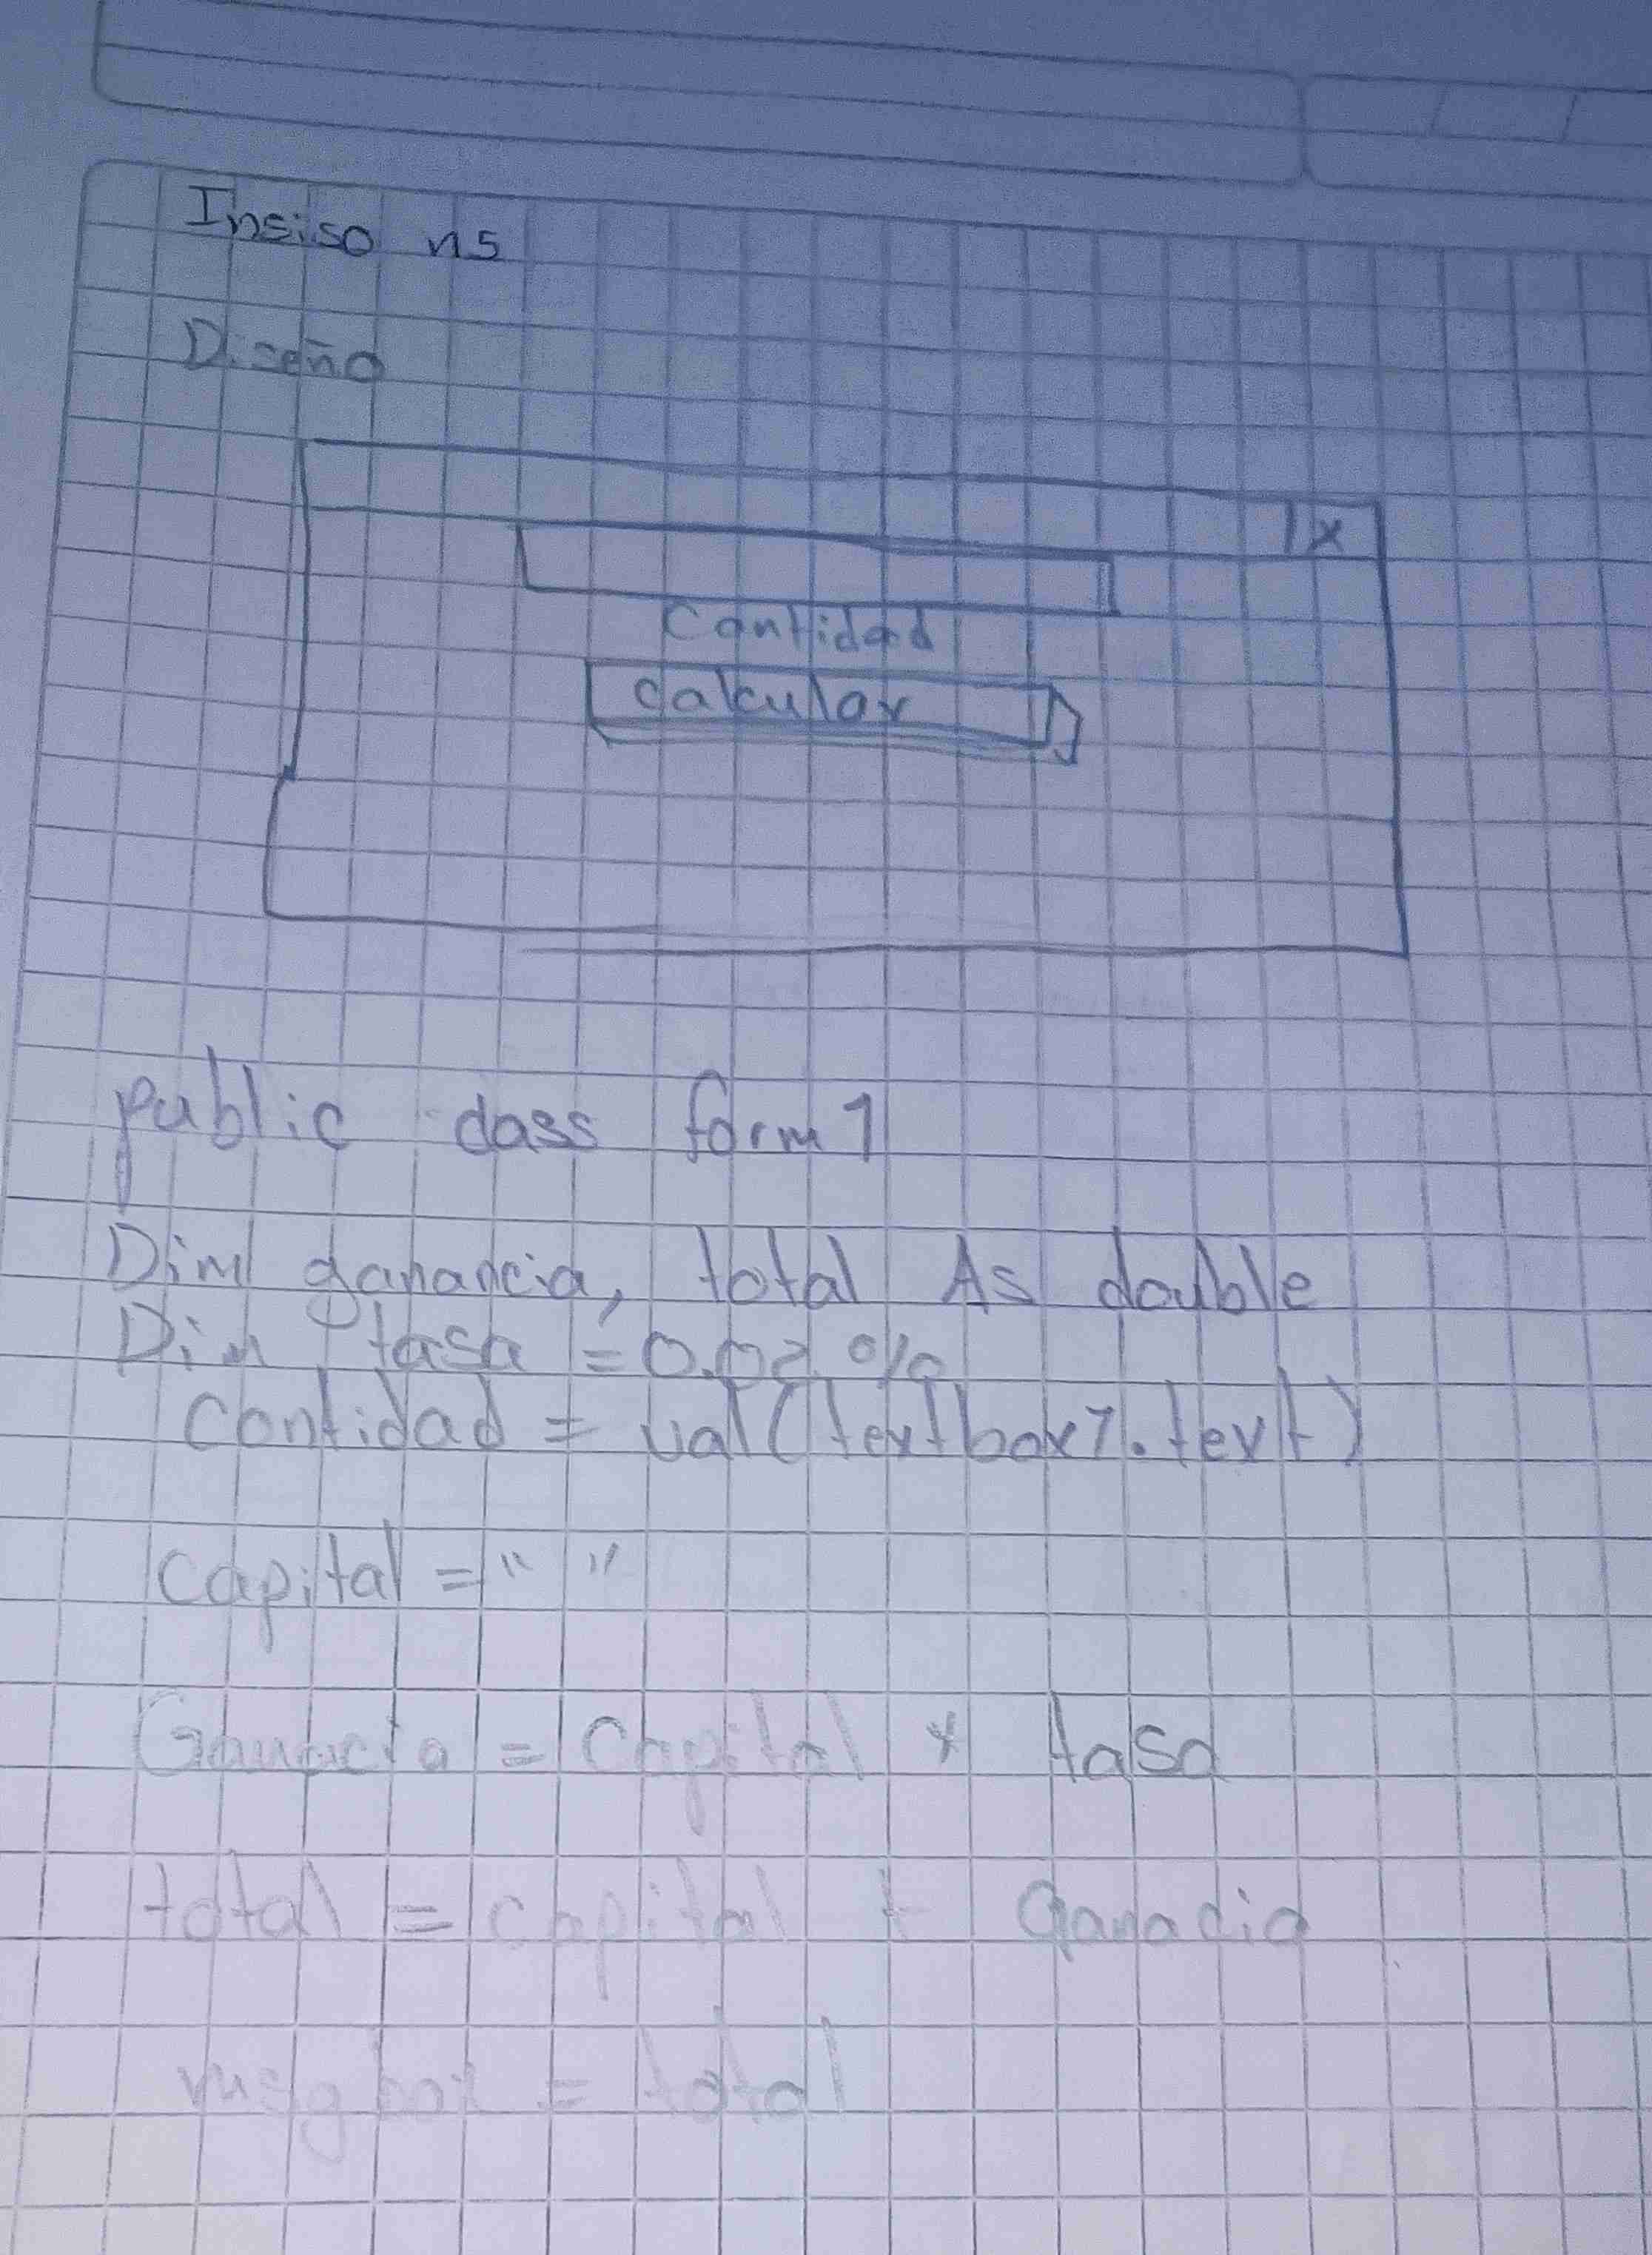 Insiso n5
Diseño
1x
Cantidad
calcular
public class form1
Dim ganancia, total As double
Dim tasa = 0.02 %
Cantidad = val(textbox1.text)
capital = “ ”
Ganacia = Capital * tasa
total = capital + Ganacia
msgbox = total